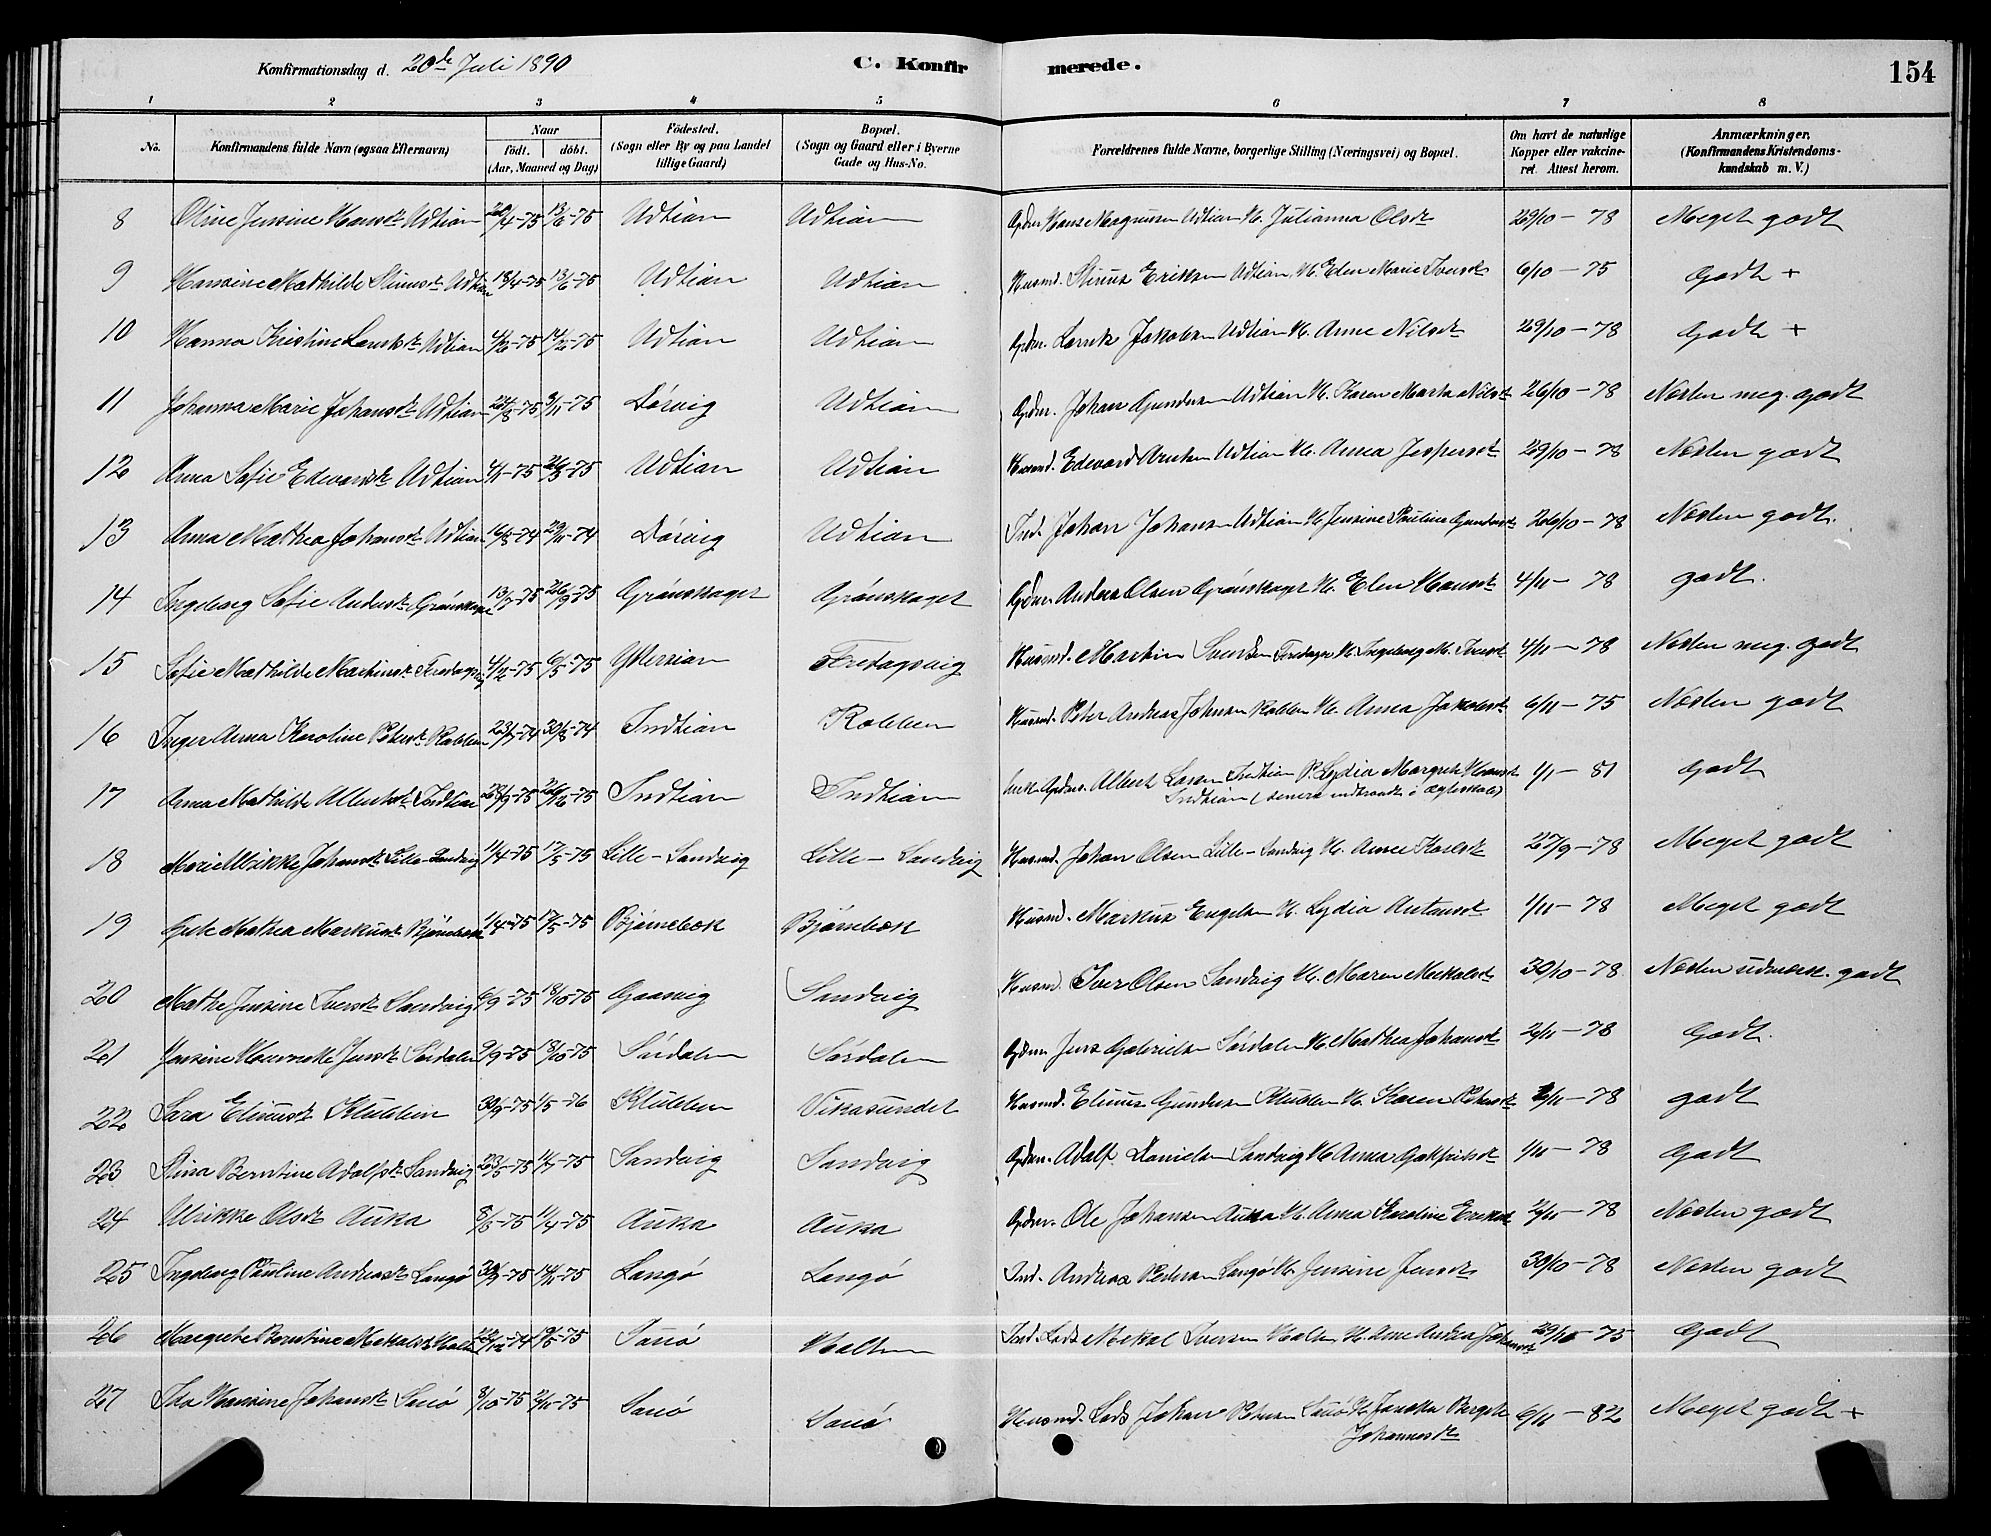 Konfirmationsdag d. 20de Juli 1890 C. Konfirmerede. 154
1 2 3 4 5 6 7 8
No. Konfirmandens fulde Navn (ogsaa Efternavn) Naar født. døbt. (Aar, Maaned og Dag) Fødested. (Sogn eller By og paa Landet tillige Gaard) Bopæl. (Sogn og Gaard eller i Byerne Gade og Hus-No. Forældrenes fulde Navne, borgerlige Stilling (Næringsvei) og Bopæl. Om havt de naturlige Kopper eller vakcineret. Attest herom. Anmærkninger. (Konfirmandens Kristendomskundskab m. V.)
8 Oline Jensine Hansdt Udtian 13/6-75 Udtian Udtian Gdm. Hans Magnusen Udtian H. Julianna Olsdt 29/10-78 Meget godt
9 Hansine Mathilde Udtian 18/4-75 13/6-75 Udtian Udtian Husmd. Eriksen Udtian, H. Elen Marie Iversdt 6/10-75 Godt +
10 Hanna Kristine Udtian Udtian Udtian Gdm. Jakobsen Udtian H. Anne Nilsdt 29/10-78 Godt +
11 Johanna Marie Johansdt Udtian 24/8-75 Dørvig Udtian Gdm. Johan Gundersen Udtian H. Karen Marta Nilsdt 26/10-78 Næsten meg. godt
12 Anna Sofie Edvardsdt Udtian 4/1-75 Udtian Udtian Husmd. Edevard Arntsen Udtian H. Anna Jespersdt 29/10-78 Næsten godt
13 Anna Mathea Johansdt Udtian 29/11-74 Dørvig Udtian Ind. Johan Johansen Udtian H. Jensine Pauline Gundersdt 26/10-78 Næsten godt.
14 Ingeborg Sofie Andersdt Grønskaget 13/7-75 26/9-75 Grønskaget Grønskaget Gdm. Anders Olsen Grønskaget H. Elen Hansdt 4/11-78 godt.
15 Sofie Mathilde Martinsdt Fredagsvig 4/2-75 6/5-75 Ytterian Fredagsvig Husmd. Martin Fredagsv. H. Ingeborg M. Iversdt 4/11-78 Næsten meg. godt
16 Inger Anna Karoline Petersdt Kobben 23/7-74 30/8-74 Indtian Kobben Husmd. Peter Andreas Johnsen Kobben H. Anna Jakobsdt 6/11-75 Næsten godt
17 Anna Mathilde Albertsdt Indtian 28/9-75 26/12-75 Indtian Indtian Gdm. Albert Indtian P. Lydia Margrete Hansdt
Indtian (senere indtraadt i Ægteskab) 1/1-81 Godt
18 Marie Ulrikke Johansdt Lille-Sandvig 1/4-75 17/5-75 Lille-Sandvig Lille-Sandvig Husmd. Johan Olsen Lille-Sandvig H. Anne Karlsdt 27/9-78 Meget godt
19 Mathea Markusdt Bjørnebæk 1/4-75 17/5-75 Bjørnebæk Bjørnebæk Husmd. Markus Engelsen H. Lydia Antonsdt 1/11-78 Meget godt
20 Mathe Jensine Iversdt Sandvig 6/9-75 18/10-75 Gaasvig Sandvig Husmd. Iver Olsen Sandvig H. Maren Mekalsdt 30/10-78 Næsten udmærk. godt
21 Jensine Jensdt Sørdalen 9/9-75 18/10-75 Sørdalen Sørdalen Gdm. Jens Gabrielsen Sørdalen H. Mathea Johansdt 2/11-78 Godt.
22 Sara Eliusdt Klubben 30/9-75 1/5-76 Klubben Vikasundet Husmd. Elius Gundersen Klubben H. Karen Petersdt 2/11-78 godt
23 Stina Berntine Adolfsdt Sandvig 23/5-75 11/7-75 Sandvig Sandvig Gdm. Adolf Danielsen Sandvig H. Anna 1/11-78 Godt
24 Ulrikke Olsdt Auka 8/3-75 11/4-75 Auka Auka Gdm. Ole Johansen Auka H. Anna Karoline Eriksdt 2/11-78 Næsten godt
25 Ingeborg Pauline Andreasdt Langø 30/9-75 14/11-75 Langø Langø Ind. Andreas Pedersen Langø H. Jensine Jensdt 30/10-78 Næsten godt
26 Margrete Berntine Mekalsdt Halten 22/12-74 19/5-75 Sauø Halten Ind. Lods Mekal Iversen Halten H. Ane Andrea Johansdt 29/10-75 Godt
27 Ida Hansine Johansdt Sauø 8/10-75 2/11-75 Sauø Sauø Husmd. Lods Johan Petersen Sauø H. Bergete
Johannesdt 6/11-82 Meget godt +